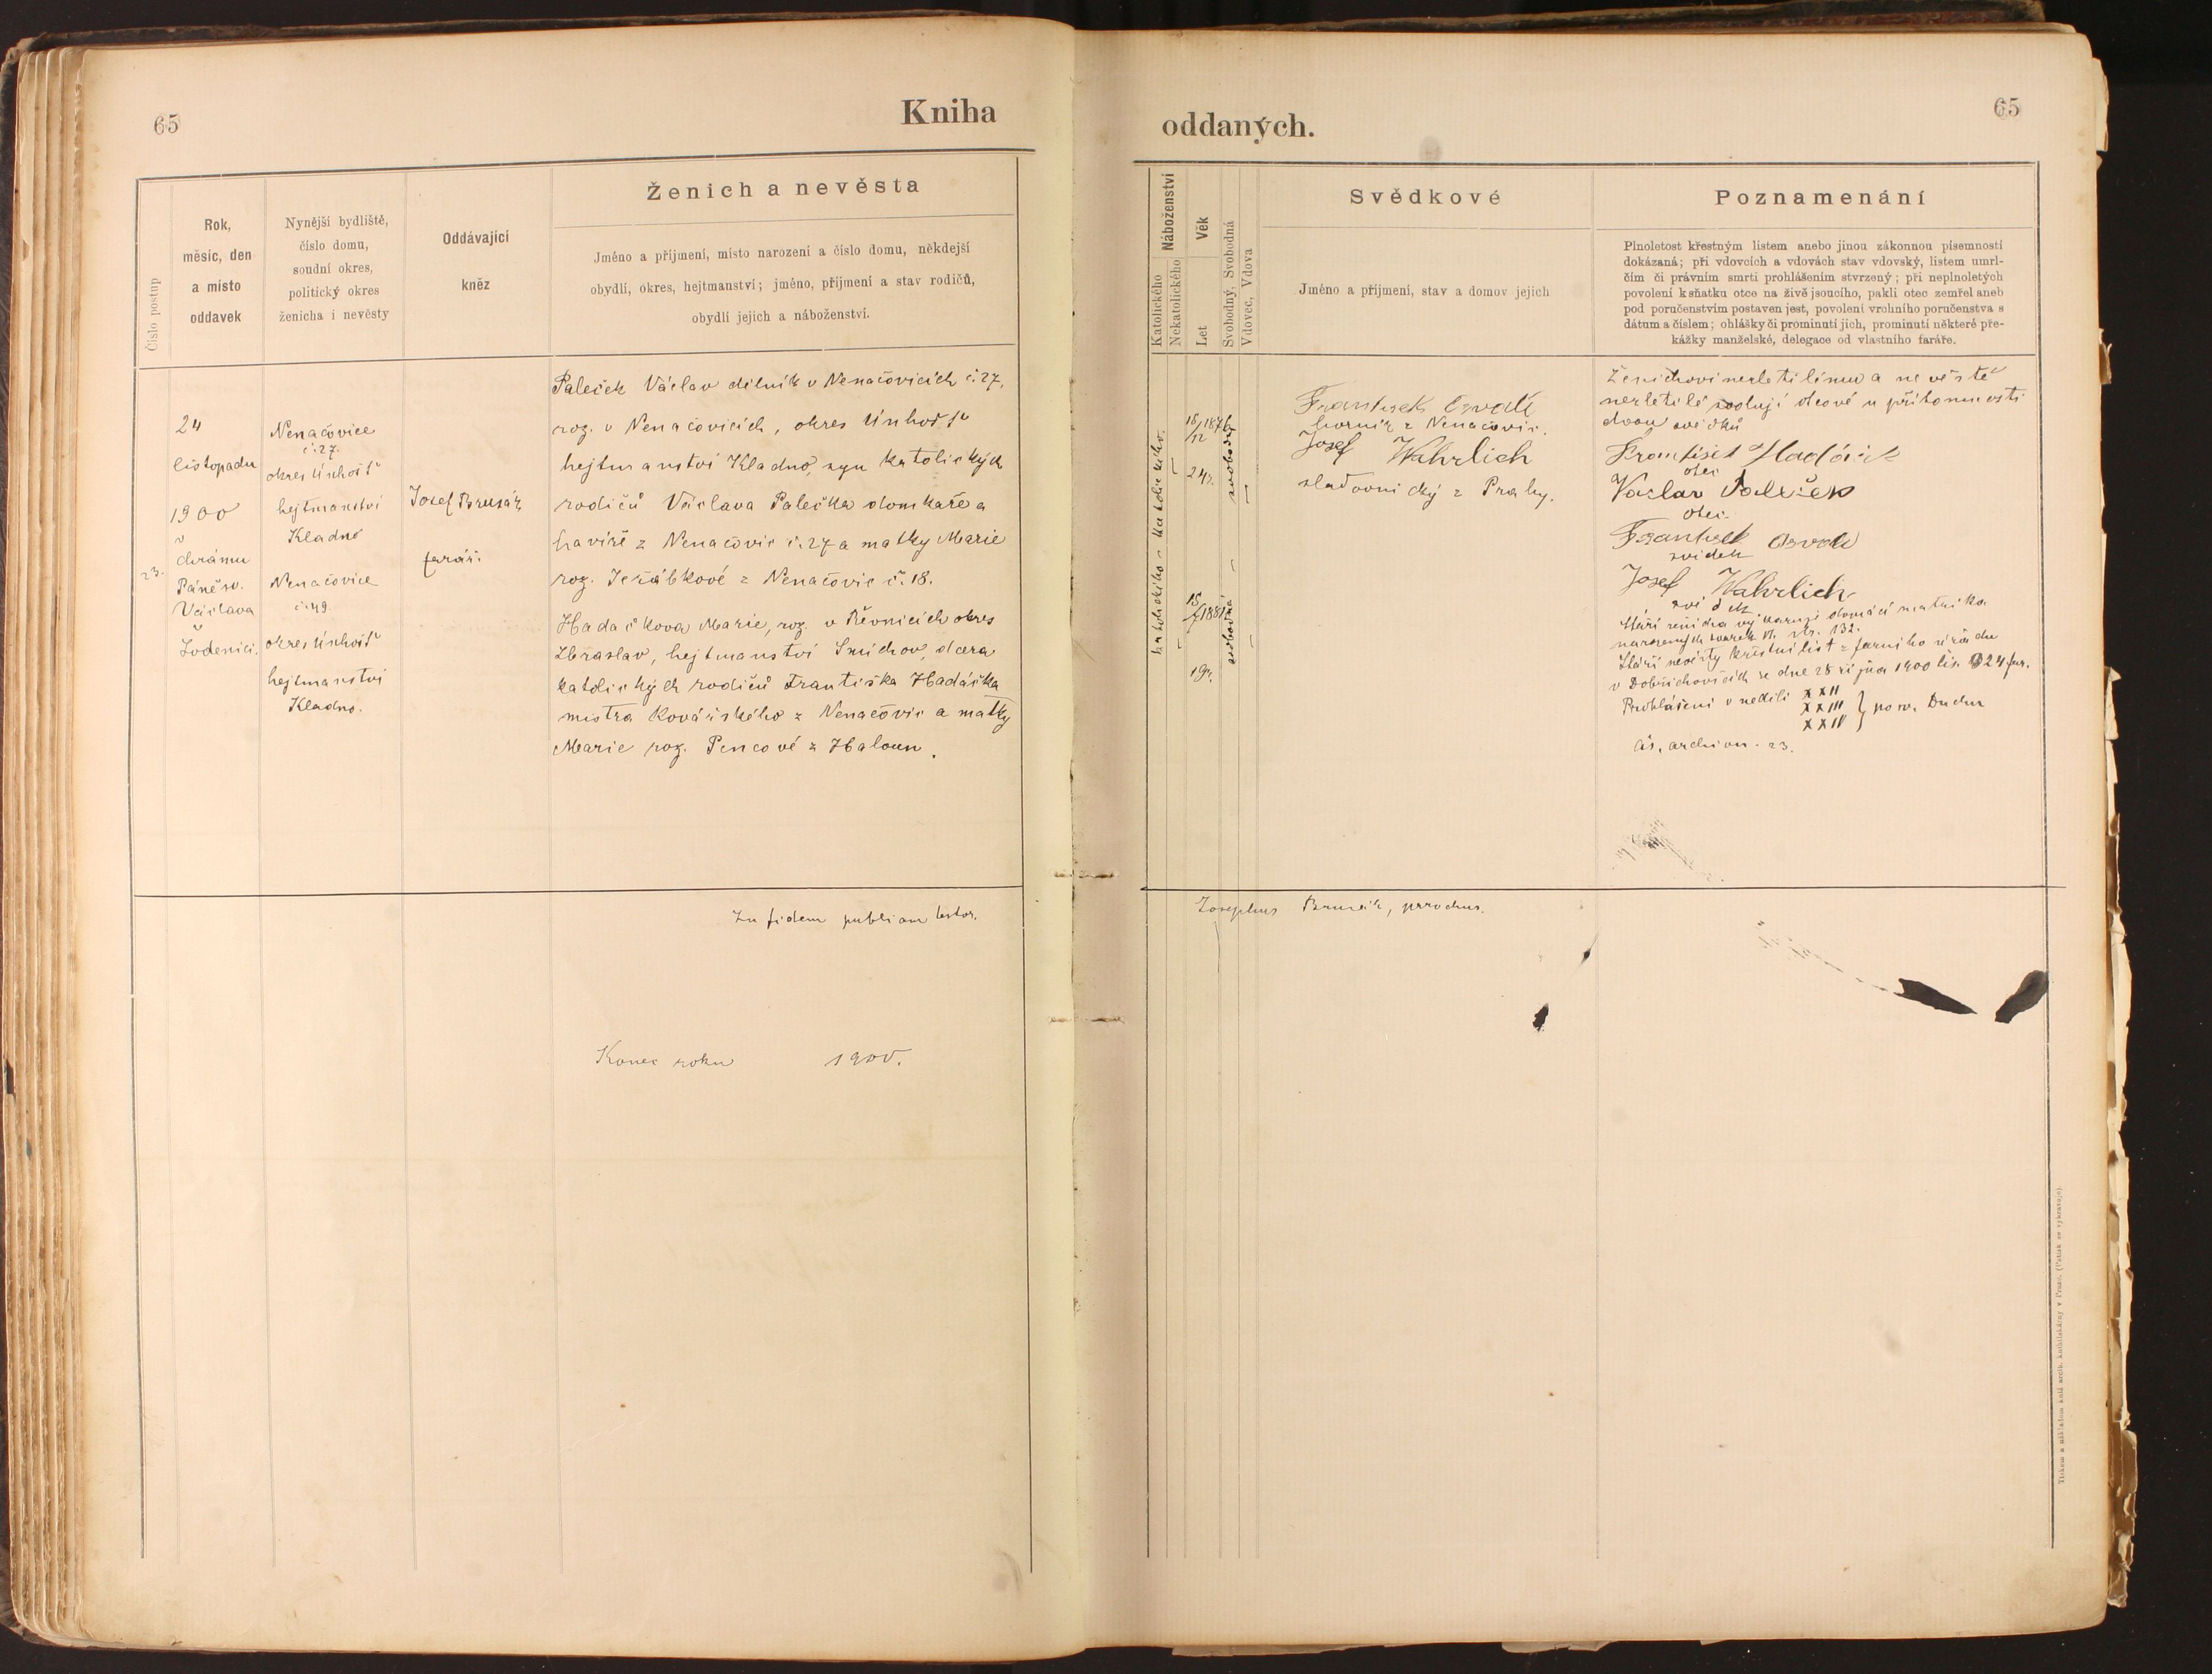 65
Kniha
Číslo postup
Rok,
měsíc, den
a místo
oddavek
Nynější bydliště,
číslo domu,
soudní okres,
politický okres
ženicha i nevěsty
Oddávající
kněz
Ženich a nevěsta
Jméno a příjmení, místo narození a číslo domu, někdejší
obydlí, okres, hejtmanství; jméno, příjmení a stav rodičů,
obydlí jejich a náboženství.
23.
24
listopadu
1900
v
chrámu
Páně sv.
Václava
v
Lodenici.
Nenačovice
č. 27.
okres Únhošť
hejtmanství
Kladno
Nenačovice
č. 49.
okres Únhošť
hejtmanství
Kladno.
Josef Brusák
farář.
Paleček Václav dělník v Nenačovicích č. 27,
roz. v Nenačovicích, okres Únhošť
hejtmanství Kladno, syn katolických
rodičů Václava Palečka domkaře a
havíře z Nenačovic č. 27 a matky Marie
roz. Jeřábkové z Nenačovic č. 18.
Hadáčkova Marie, roz. v Řevnicích okres
Zbraslav, hejtmanství Smíchov, dcera
katolických rodičů Františka Hadáčka
mistra kovářského z Nenačovic a matky
Marie roz. Pencové z Haloun.
In fidem publicam testor.
Konec roku 1900.
65
oddaných.
Náboženství
Katolického
Nekatolického
Věk
Let
Svobodný, Svobodná
Vdovec, Vdova
Svědkové
Jméno a příjmení, stav a domov jejich
Poznamenání
Plnoletost křestným listem anebo jinou zákonnou písemností
dokázaná; při vdovcích a vdovách stav vdovský, listem umrl-
čím či právním smrti prohlášením stvrzený; při neplnoletých
povolení k sňatku otce na živě jsoucího, pakli otec zemřel aneb
pod poručenstvím postaven jest, povolení vrchního poručenstva s
dátum a číslem; ohlášky či prominutí jich, prominutí některé pře-
kážky manželské, delegace od vlastního faráře.
katolického
katolického
18/12 1876
24 r.
svobodný
1881
19 r.
svobodná
František Osvald
horník z Nenačovic.
Josef Wahrlich
sladovnický z Prahy.
Ženichovi nezletilému a nevěstě
nezletilé svolují otcové u přítomnosti
dvou svědků
František Hadáček
otec
Václav Paleček
otec
František Osvald
svědek
Josef Wahrlich
svědek
Stáří ženicha vykazuje domácí matrika
narozených svazek VI. str. 132.
Stáří nevěsty křestní list z farního úřadu
v Dobřichovicích ze dne 28 října 1900 čís. 324 far.
Prohlášeni v neděli XXII
XXIII
XXIV
} po sv. Duchu
čís. archivu. 23.
Josephus Brusák, parochus.